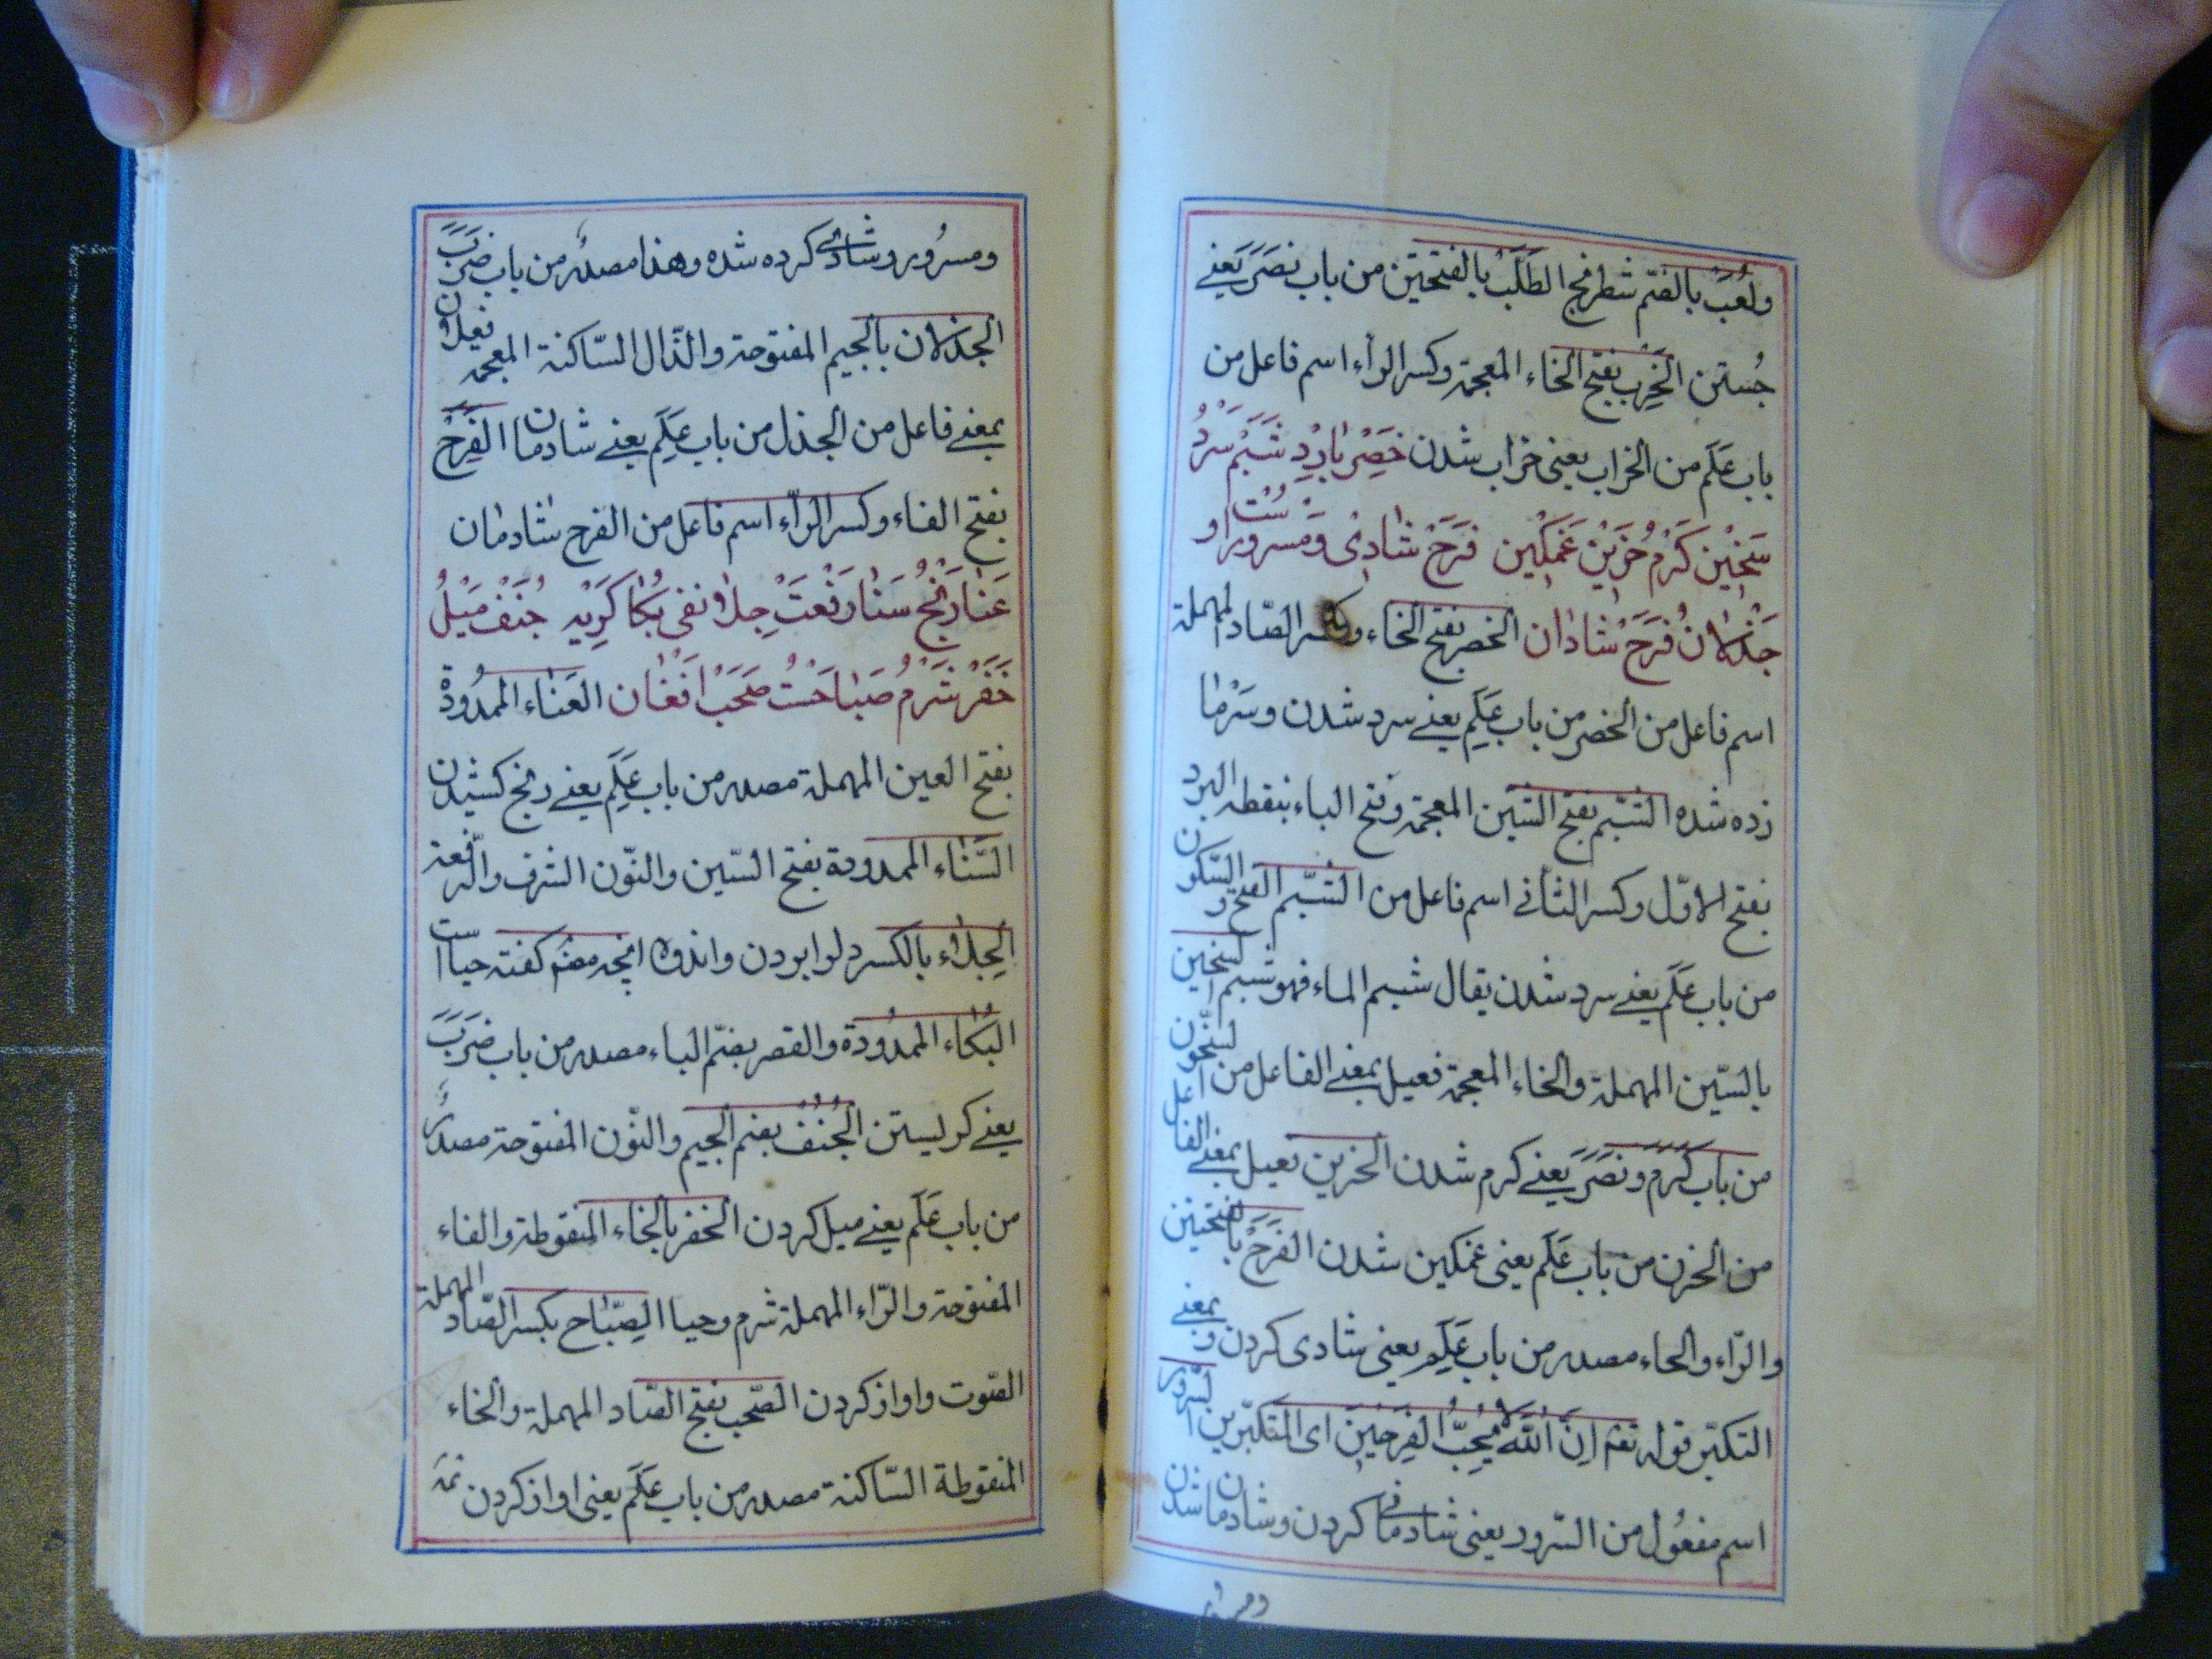 ولُعَبْ بالضّم شطرنج الطَلَبْ بالفتحتين من باب نَصَرَ يَعنے
جُستن الخَرِب بفتح الخاء المعجمة وكسر الرآء اسم فاعل من
باب عَلَم من الخراب يعنى خراب شدن خَصِرْ بارِد شَبِمْ سَرْدُ
سَخِيْن كَرْمُ حُزَيْن غَمَكْين فَرَحْ شادِىْ وَمَسرور او ست
جَذْلانُ فَرَحَ شادان الخصر بفتح الخاء وبكسر الصّاد المهملة
اسم فاعل من الخصر من باب عَلِمَ يعنے سرد شدن وسَرْما
زده شده الشبّم بفتح الشين المعجمة وفتح الباء بنقطه البرد
بفتح الاوّل وكسر الثانى اسم فاعل من الشبّم الفتح والسّكون
من باب عَلَم يعنے سرد شدن يقال شبم الماء فهو شبم السخين
بالسّين المهملة والخاء المعجمة فعيل بمعنے الفاعل من السّخون
من باب كَرُمَ ونَصَرَ يَعنے كرم شدن الحزين فعيل بمعنے الفاعل
من الحزن من باب عَلَم يعنى غمكين شدن الفَرَحْ بالفتحتين
والرّاء والحاء مصدر من باب عَلِم يعنى شادى كردن و بمعنے
التكبّر قوله تعم اِنَّ اللّٰهَ لا يُحِبُّ الفَرِحِيْنَ اى المتكبّرين السّرور
اسم مفعُول من السّرور يعنى شادمانى كردن وشادمان شدن
ومسرور
ومسرُور وشادى كرده شده وهذا مصدر من باب ضَرَبَ
الجذلان بالجيم المفتوحة والذّال السّاكنة المعجمه فعلان
بمعنے فاعل من الجذل من باب عَلِم يعنے شادمان الفَرِحُ
بفتح الفاء وكسر الرّاء اسم فاعل من الفرح شادمان
عَنا رَنْج سَنا رَفْعَتْ جِلاءْ نفى بُكا كَرِيْه جُنَفْ مَيْلُ
خَفَرْ شَرْمُ صَباحَسْت صَخَبْ افَغان العَناء الممدُودة
بفتح العين المهملة مصدر من باب عَلِمَ يعنے رنج كشيدن
السَّناء الممدودة بفتح السّين والنّون الشرف والرّفعة
الجِلاء بالكسر دلو ابردن واندوه انچه مضم كفته حيا است
البُكاء الممدُودة والقصر بضّم الباء مصدر من باب ضَرَبَ
يعنے كريستن الجُنَفْ بضم الجيم والنّون المفتوحة مصدر
من باب عَلَم يعنے ميل كردن الخفر بالخاء المنقوطة والفاء
المفتوحة والرّاء المهملة شرم وحيا الصِبّاح بكسر الصّاد المهملة
الصّوت واواز كردن الصّخب بفتح الصّاد المهملة والخاء
المنقوطة السّاكنة مصدر من باب عَلَم يعنى اواز كردن تمه